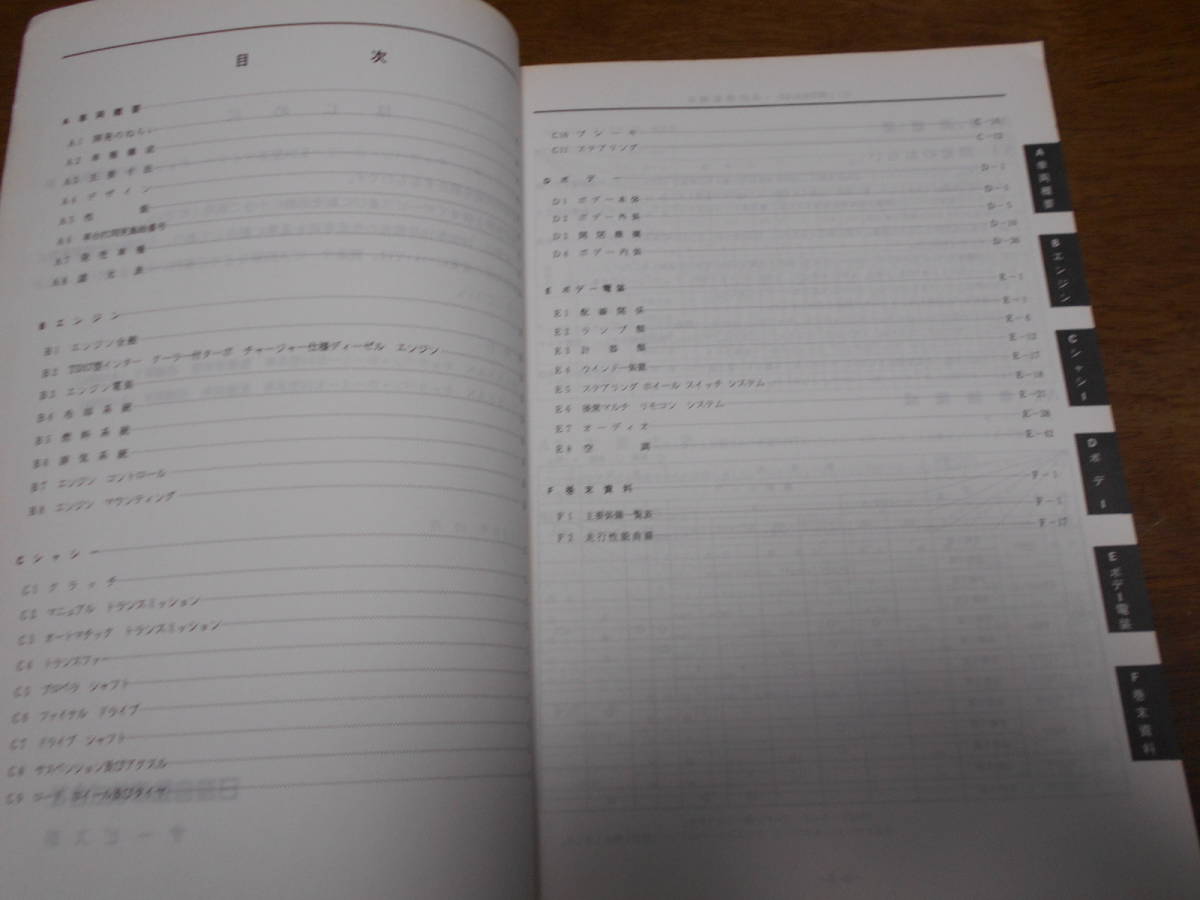 目次
A 車両概要
A1 開発のねらい
A2 車種構成
A3 主要寸法
A4 デザイン
A5 性能
A6
A7 発売車種
A8 諸元表
B エンジン
B1 エンジン全般
B2 インター クーラー付ターボ チャージャー仕様ディーゼル エンジン
B3 エンジン電装
B4 冷却系統
B5 燃料系統
B6 排気系統
B7 エンジン コントロール
B8 エンジン マウンティング
C シャシー
C1 クラッチ
C2 マニュアル トランスミッション
C3 オートマチック トランスミッション
C4 トランスファー
C5 プロペラ シャフト
C6 ファイナル ドライブ
C7 ドライブ シャフト
C8 サスペンション及びアクスル
C9 ロード ホイール及びタイヤ
C10 ブレーキ
C11 ステアリング
D ボデー D-1
D1 ボデー本体
D2 ボデー外装 D-5
D3 開閉機構
D4 ボデー内装
E ボデー電装 E-1
E1 配線関係 E-1
E2 ランプ類 E-6
E3 計器類
E4 ウインドー
E5 ステアリング ホイール スイッチ システム E-18
E6 マルチ リモコン システム E-21
E7 オーディオ
E8 空調 E-42
F 巻末資料 F-1
F1 主要装備一覧表 F-1
F2 走行性能曲線 F-17
A 車両概要
B エンジン
C シャシー
D ボデー
E ボデー電装
F 巻末資料